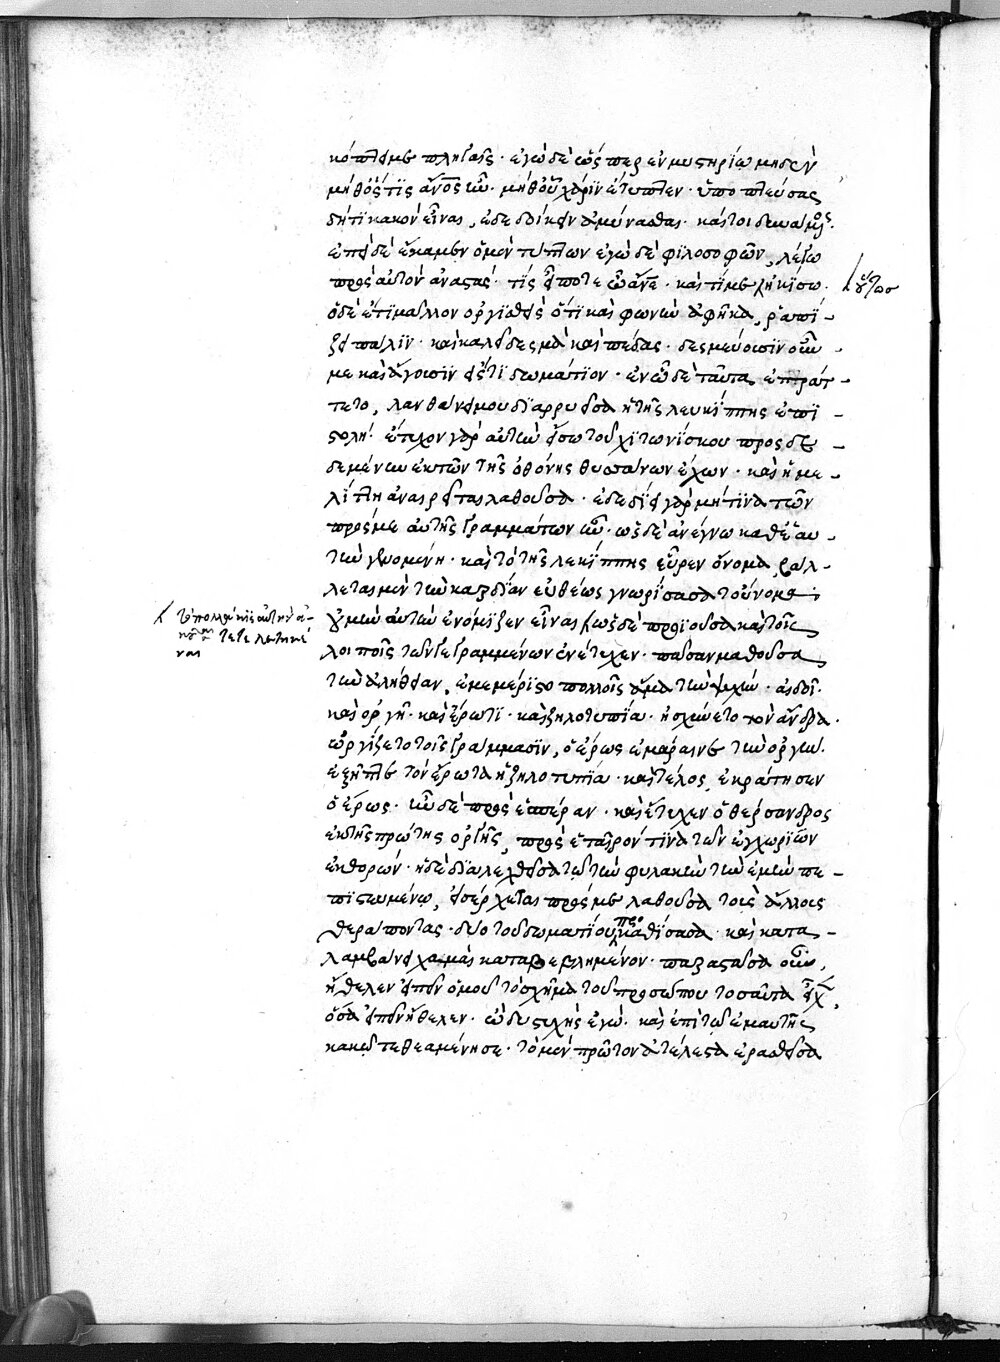 κόπτει με πληγαῖς · ἐγὼ δὲ ὥσπερ ἐν μυστηρίῳ μηδὲν
μήθ' ὅστις ἄνος ἦν · μήθ' οὗ χάριν ἔτυπτεν · ὑποπτεύσας
δή τι κακὸν εἶναι, ἐδεδοίκειν ἀμύνασθαι · καίτοι δυνάμενος.
ἐπεὶ δὲ ἔκαμεν ὁ μὲν τύπτων ἐγὼ δὲ φιλοσοφῶν, λέγω
πρὸς αὐτὸν ἀναστάς · τίς εἶ ποτε ὦ ἄνε · καὶ τί με ᾐκίσω ·
ὁ δὲ ἔτι μᾶλλον ὀργισθεὶς ὅτι καὶ φωνὴν ἀφῆκα, ῥαπί-
ζει πάλιν · καὶ καλεῖ δεσμὰ καὶ πέδας · δεσμεύουσιν οὖν
με καὶ ἄγουσιν εἴς τι δωμάτιον · ἐν ᾧ δὲ ταῦτα ἐπράτ-
τετο, λανθάνει μου διαρρυεῖσα ἡ τῆς λευκίππης ἐπι-
στολή · ἔτυχον γὰρ αὐτὴν εἴσω τοῦ χιτωνίσκου προσδε-
δεμένην ἐκ τῶν τῆς ὀθόνης θυσάνων ἔχων · καὶ ἡ με-
λίττη ἀναιρεῖται λαθοῦσα · ἐδεδίει γὰρ μή τινα τῶν
πρός με αὐτῆς γραμμάτων ἦν · ὡς δὲ ἀνέγνω καθ' ἑαυ-
τὴν γενομένη · καὶ τὸ τῆς λευκίππης εὗρεν ὄνομα, βάλ-
λεται μὲν τὴν καρδίαν εὐθέως γνωρίσασα τοὔνομα
οὐ μὴν αὐτὴν ἐνόμιζεν εἶναι ὡς δὲ προϊοῦσα καὶ τοῖς
λοιποῖς τῶν γεγραμμένων ἐνέτυχεν · πᾶσαν μαθοῦσα
τὴν ἀλήθειαν, ἐμεμέριστο πολλοῖς ἅμα τὴν ψυχήν · αἰδοῖ
καὶ ὀργῇ · καὶ ἔρωτι · καὶ ζηλοτυπίᾳ · ᾐσχύνετο τὸν ἄνδρα ·
ὠργίζετο τοῖς γράμμασιν, ὁ ἔρως ἐμάραινε τὴν ὀργήν.
ἐξῆπτε τὸν ἔρωτα ἡ ζηλοτυπία · καὶ τέλος ἐκράτησεν
ὁ ἔρως · ἦν δὲ πρὸς ἑσπέραν · καὶ ἔτυχεν ὁ θέρσανδρος
ἐκ τῆς πρώτης ὀργῆς, πρὸς ἑταῖρόν τινα τῶν ἐγχωρίων
ἐκθορών · ἡ δὲ διαλεχθεῖσα τῷ τὴν φυλακὴν τὴν ἐμὴν πε-
πιστευμένῳ, εἰσέρχεται πρός με λαθοῦσα τοὺς ἄλλους
θεράποντας · δύο τοῦ δωματίου προκαθίσασα · καὶ κατα-
λαμβάνει χαμαὶ καταβεβλημένον · παραστᾶσα οὖν,
ἤθελεν εἰπεῖν ὁμοῦ τὸ σχῆμα τοῦ προσώπου τοσαῦτα εἶχ,
ὅσα εἰπεῖν ἤθελεν · ὦ δυστυχὴς ἐγὼ · καὶ ἐπὶ τῷ ἐμαυτῆς
κακῷ τεθεαμένη σε · τὸ μὲν πρῶτον ἀτέλεστα ἐρασθεῖσα